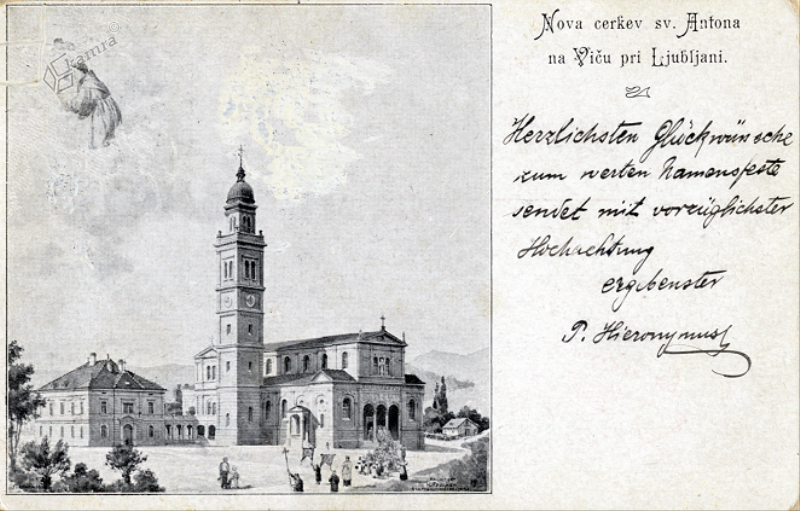 kamra
Nova cerkev sv. Antona
na Viču pri Ljubljani.
Herzlichsten Glückwünsche
zum werten Namensfeste
sendet mit vorzüglichster
Hochachtung
ergebenster
P. Hieronymus